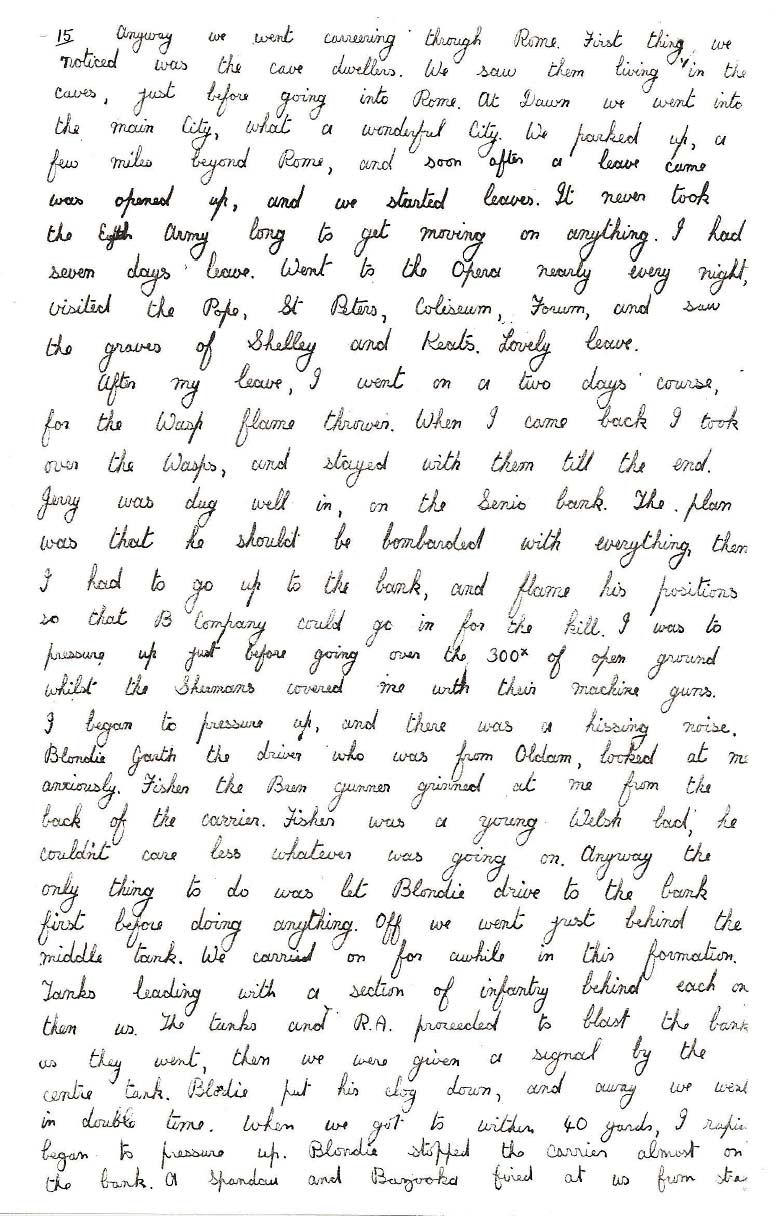 15 Anyway we went carreering through Rome. First thing, we
noticed was the cave dwellers. We saw them living in the
caves, just before going into Rome. At Dawn we went into
the main City, what a wonderful City. We parked up, a
few miles beyond Rome, and soon after a leave came
was opened up, and we started leaves. It never took
the Army long to get moving on anything. I had
seven days leave. Went to the Opera nearly every night,
visited the Pope, St Peters, Coliseum, Forum, and saw
the graves of Shelley and Keats. Lovely leave.
After my leave, I went on a two days course,
for the Wasp flame thrower. When I came back I took
over the Wasps, and stayed with them till the end.
Jerry was dug well in, on the Senio bank. The plan
was that he should be bombarded with everything, then
I had to go up to the bank, and flame his positions
so that B Company could go in for the kill. I was to
pressure up just before going over the 300x of open ground
whilst the Shermans covered me with their machine guns.
I began to pressure up, and there was a hissing noise.
Blondie Garth the driver who was from Oldam, looked at me
anxiously. Fisher the Bren gunner grinned at me from the
back of the carrier. Fisher was a young Welsh lad, he
couldn't care less whatever was going on. Anyway the
only thing to do was let Blondie drive to the bank
first before doing anything. Off we went just behind the
middle tank. We carried on for awhile in this formation.
Tanks leading with a section of infantry behind each on
then us. The tanks and R.A. proceeded to blast the bank
as they went, then we were given a signal by the
centre tank. Blodie put his clog down, and away we went
in double time. When we got to within 40 yards, I
began to pressure up. Blondie stopped the carrier almost on
the bank. A Spandau and Bazooka fired at us from